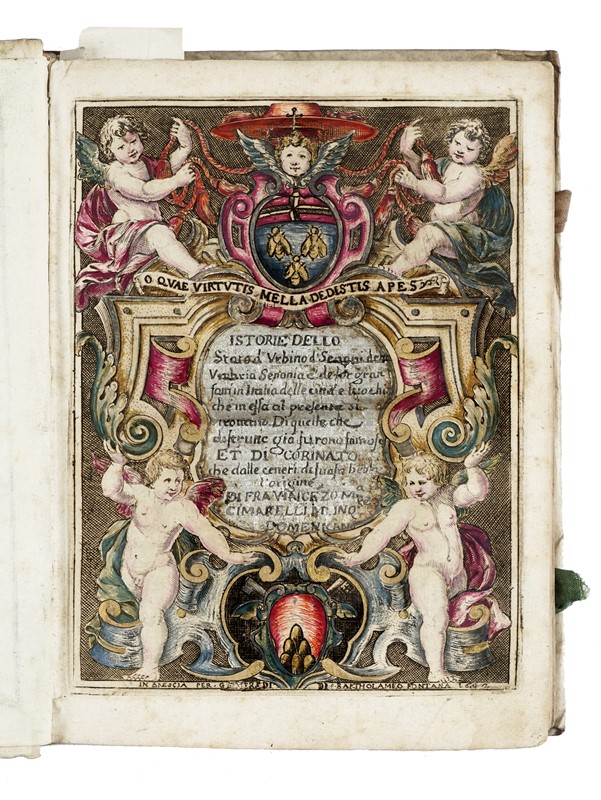 O QVAE VIRTVTIS MELLA DEDISTIS APES
ISTORIE DELLO
Stato d' Vrbino d' Senoni detta
Vmbria Senonia e de lor gran
fatti in Italia delle città e luochi
che in essa al presente si
trouano. Di quelle che
distrutte già furono famose
ET DI CORINALTO
che dalle ceneri di suasa hebbe
l'origine
DI FRA VINCEZO M.
CIMARELLI
DOMENICAN
IN BRESCIA PER DI BARTHOLAMEO FONTANA